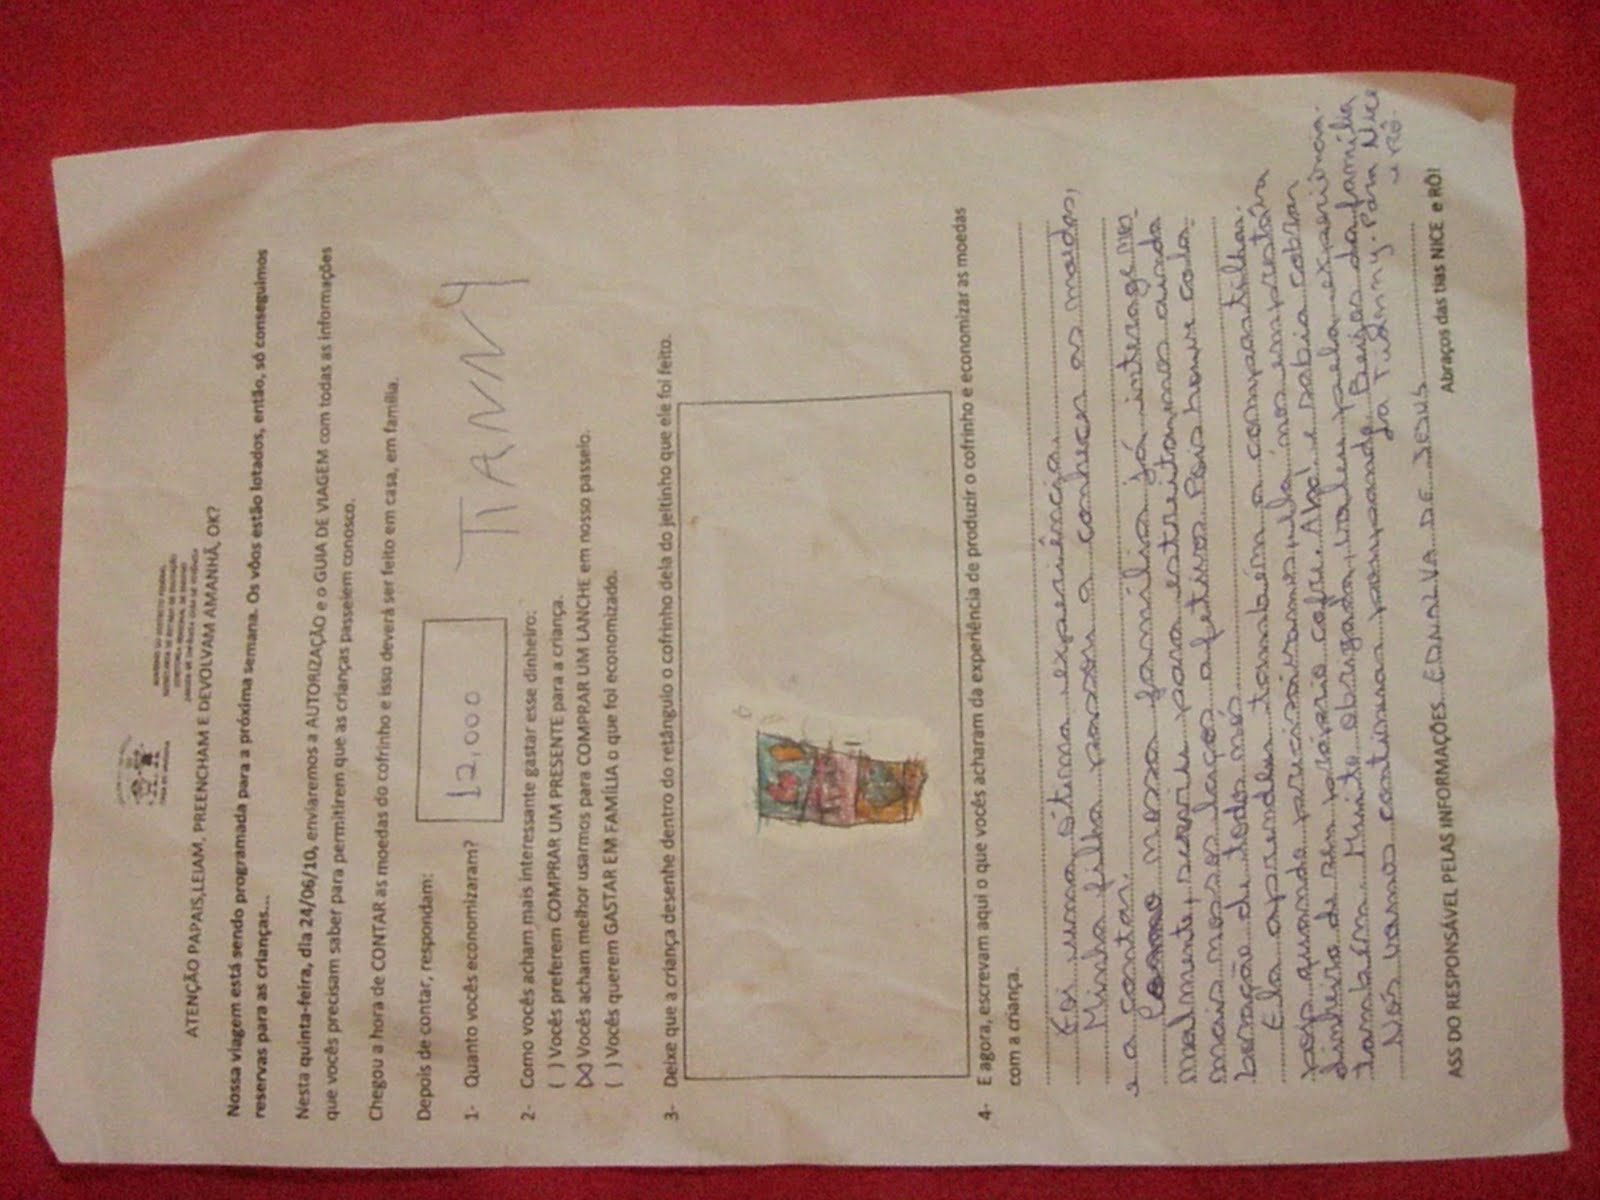 GOVERNO DO DISTRITO FEDERAL
SECRETARIA DE ESTADO DE EDUCAÇÃO
ATENÇÃO PAPAIS,LEIAM, PREENCHAM E DEVOLVAM AMANHÃ, OK?
Nossa viagem está sendo programada para a próxima semana. Os vôos estão lotados, então, só conseguimos
reservas para as crianças...
Nesta quinta-feira, dia 24/06/10, enviaremos a AUTORIZAÇÃO e o GUIA DE VIAGEM com todas as informações
que vocês precisam saber para permitirem que as crianças passeiem conosco.
Chegou a hora de CONTAR as moedas do cofrinho e isso deverá ser feito em casa, em família.
Depois de contar, respondam:
1- Quanto vocês economizaram? 12,000 TIANNY
2- Como vocês acham mais interessante gastar esse dinheiro:
( ) Vocês preferem COMPRAR UM PRESENTE para a criança.
(X) Vocês acham melhor usarmos para COMPRAR UM LANCHE em nosso passeio.
( ) Vocês querem GASTAR EM FAMÍLIA o que foi economizado.
3- Deixe que a criança desenhe dentro do retângulo o cofrinho dela do jeitinho que ele foi feito.
4- E agora, escrevam aqui o que vocês acharam da experiência de produzir o cofrinho e economizar as moedas
com a criança.
Foi uma ótima experiência.
Minha filha passou a conhecer as moedas,
e a contar.
Como nossa família já interage nor
malmente, serviu para estreitarmos ainda
mais nossos laços afetivos. Pois houve cola
boração de todos nós.
Ela aprendeu também a compartilhar.
pois quando precisávamos, ela nos emprestava
dinheiro de seu próprio cofre. Aha! e sabia cobrar
também. Muito obrigada, valeu pela experiência.
Nós vamos continuar poupando. Beijos da família
da Tianny. Para Nice
e Rô.
ASS DO RESPONSÁVEL PELAS INFORMAÇÕES. EDNALVA DE JESUS
Abraços das tias NICE e RÔ!